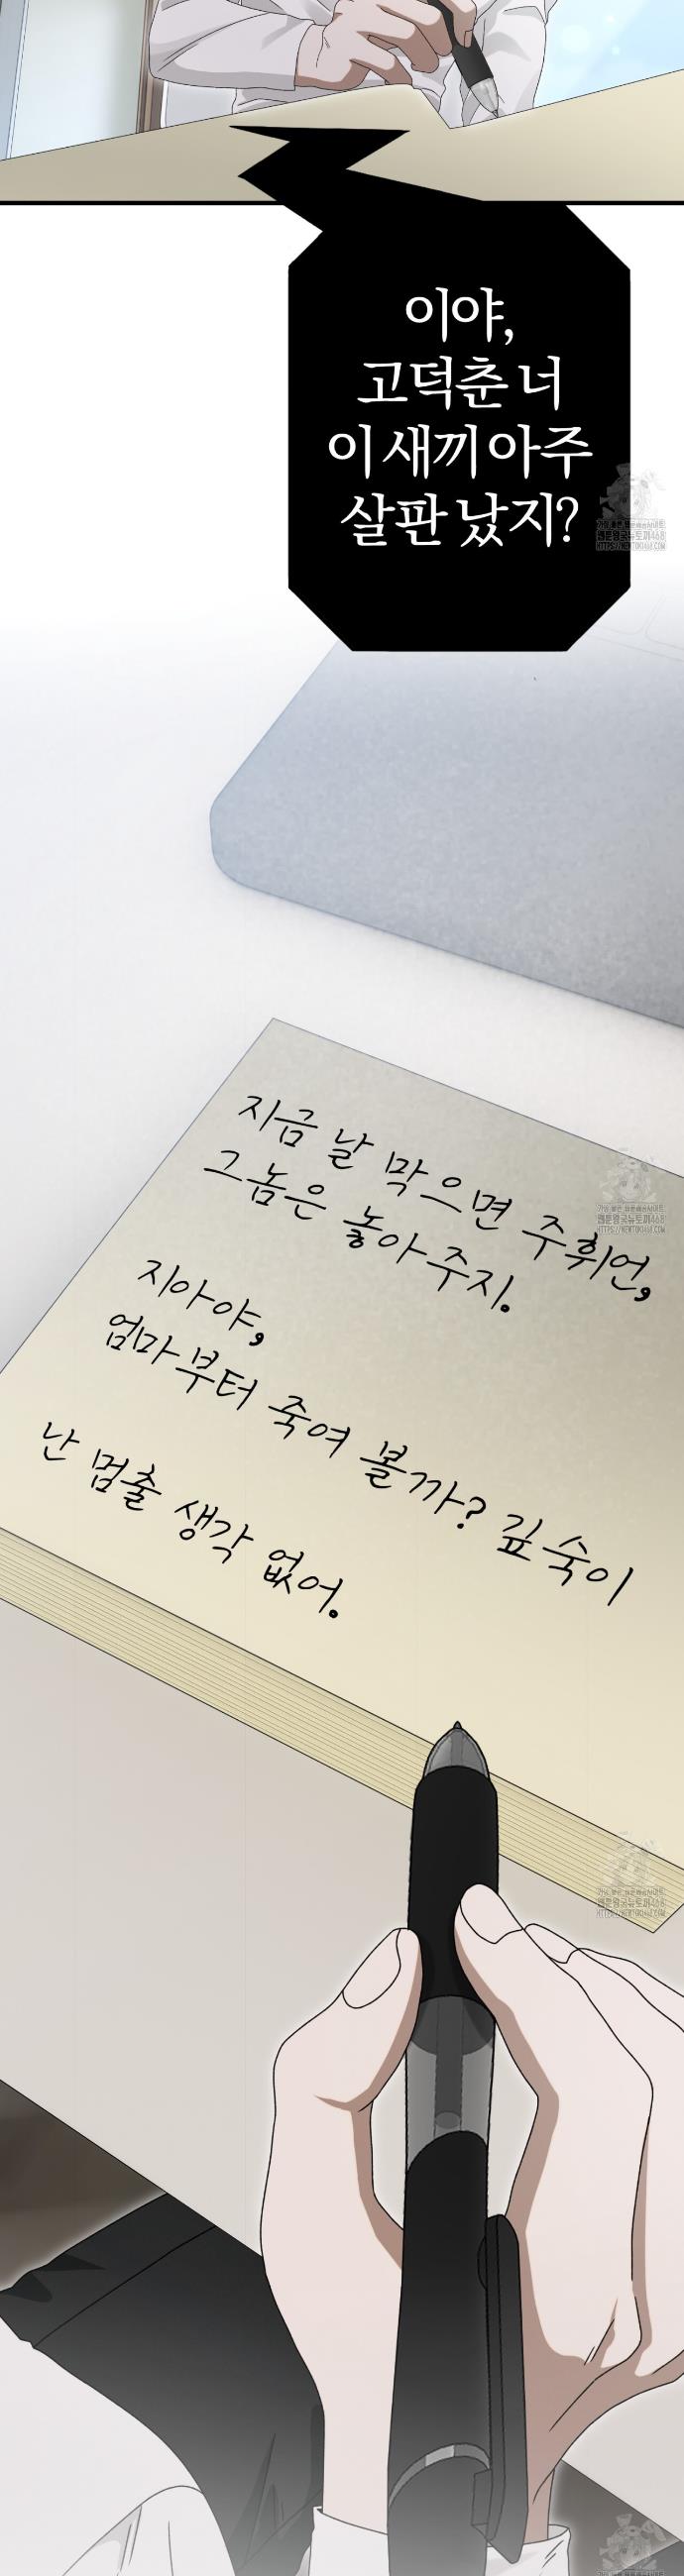 이야,
고덕춘 너
이 새끼 아주
살판 났지?
지금 날 막으면 주휘언,
그놈은 놓아주지.
지아야,
엄마부터 죽여 볼까? 깊숙이
난 멈출 생각 없어.